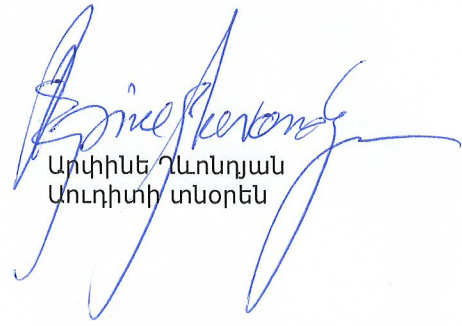 Արփինե Ղևոնդյան
Աուդիտի տնօրեն